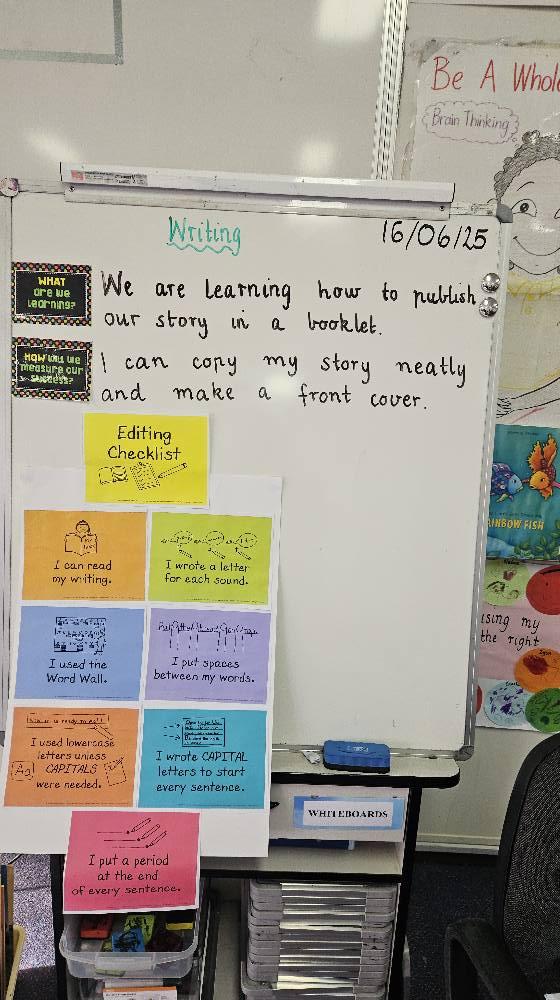 Be A Whole
Brain Thinking
Writing
16/06/25
WHAT
are we
learning?
We are learning how to publish
our story in a booklet.
HOW will we
measure our
success?
I can copy my story neatly
and make a front cover.
Editing
Checklist
I can read
my writing.
I wrote a letter
for each sound.
I used the
Word Wall.
I put spaces
between my words.
I used lowercase
letters unless
CAPITALS
were needed.
Aa
I wrote CAPITAL
letters to start
every sentence.
I put a period
at the end
of every sentence.
WHITEBOARDS
RAINBOW FISH
using my
the right